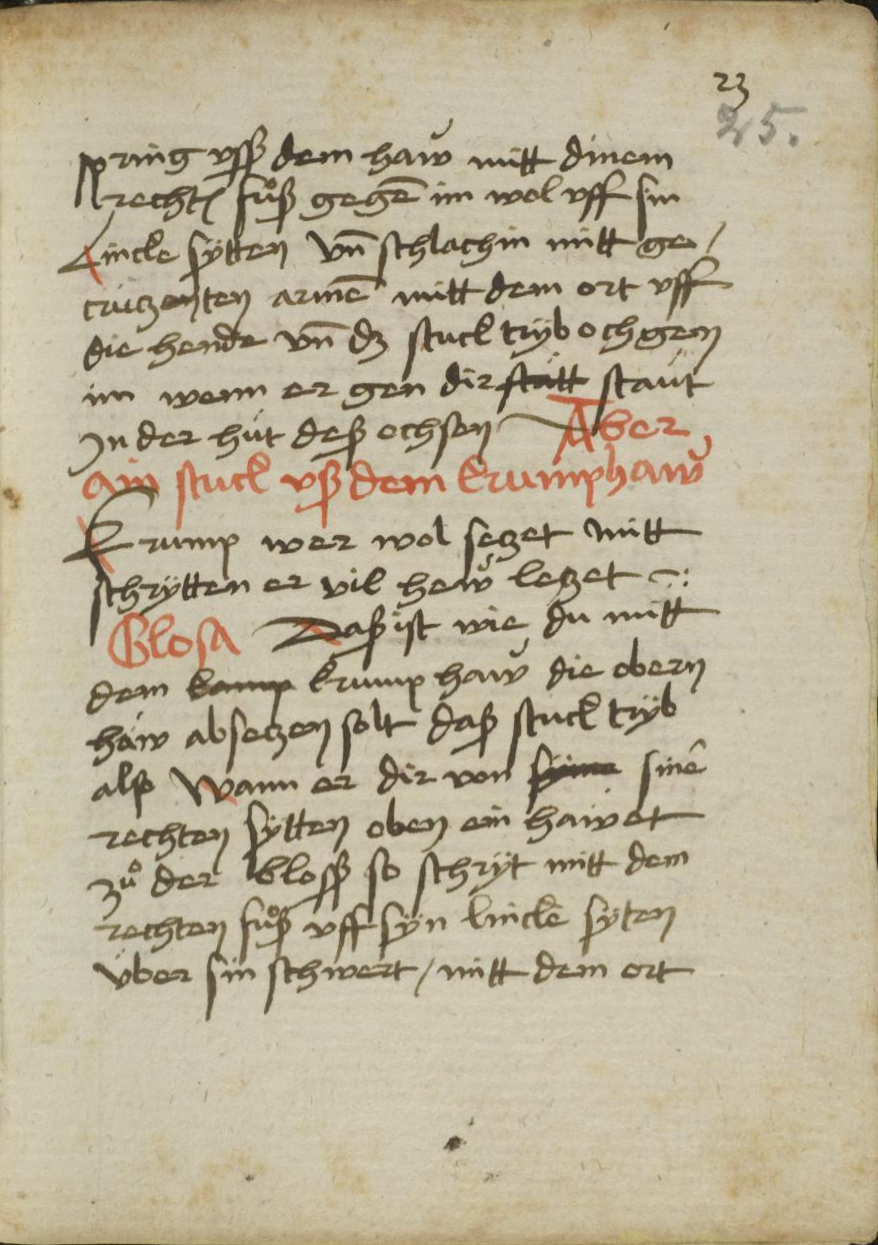 23
25.
spring vsß dem haw̌ mitt dinem
rechtē fůß gegē im wol vff sin
Lincke sÿtten Vn̄ schlach in mitt ge /
crützenten armē mitt dem ort vff
die hende vn̄ dz stuck trÿb och gen
im wenn er gen dir statt staüt
In der hüt deß ochsen Aber
ain stuck vß dem krumphaw̌
Krump wer wol seczet mitt
schrÿtten er vil hew̌ leczet
Glosa Daß ist wie du mitt
dem kamp krumphaw̌ die obern
häw abseczen solt daß stuck trÿb
alß Wann er dir von sÿine sinē
rechten sÿtten oben ein hawet
zů der blosß so schrÿt mitt dem
rechten fůß vff sÿn linckē sÿten
v̈ber sin schwert / mitt dem ort